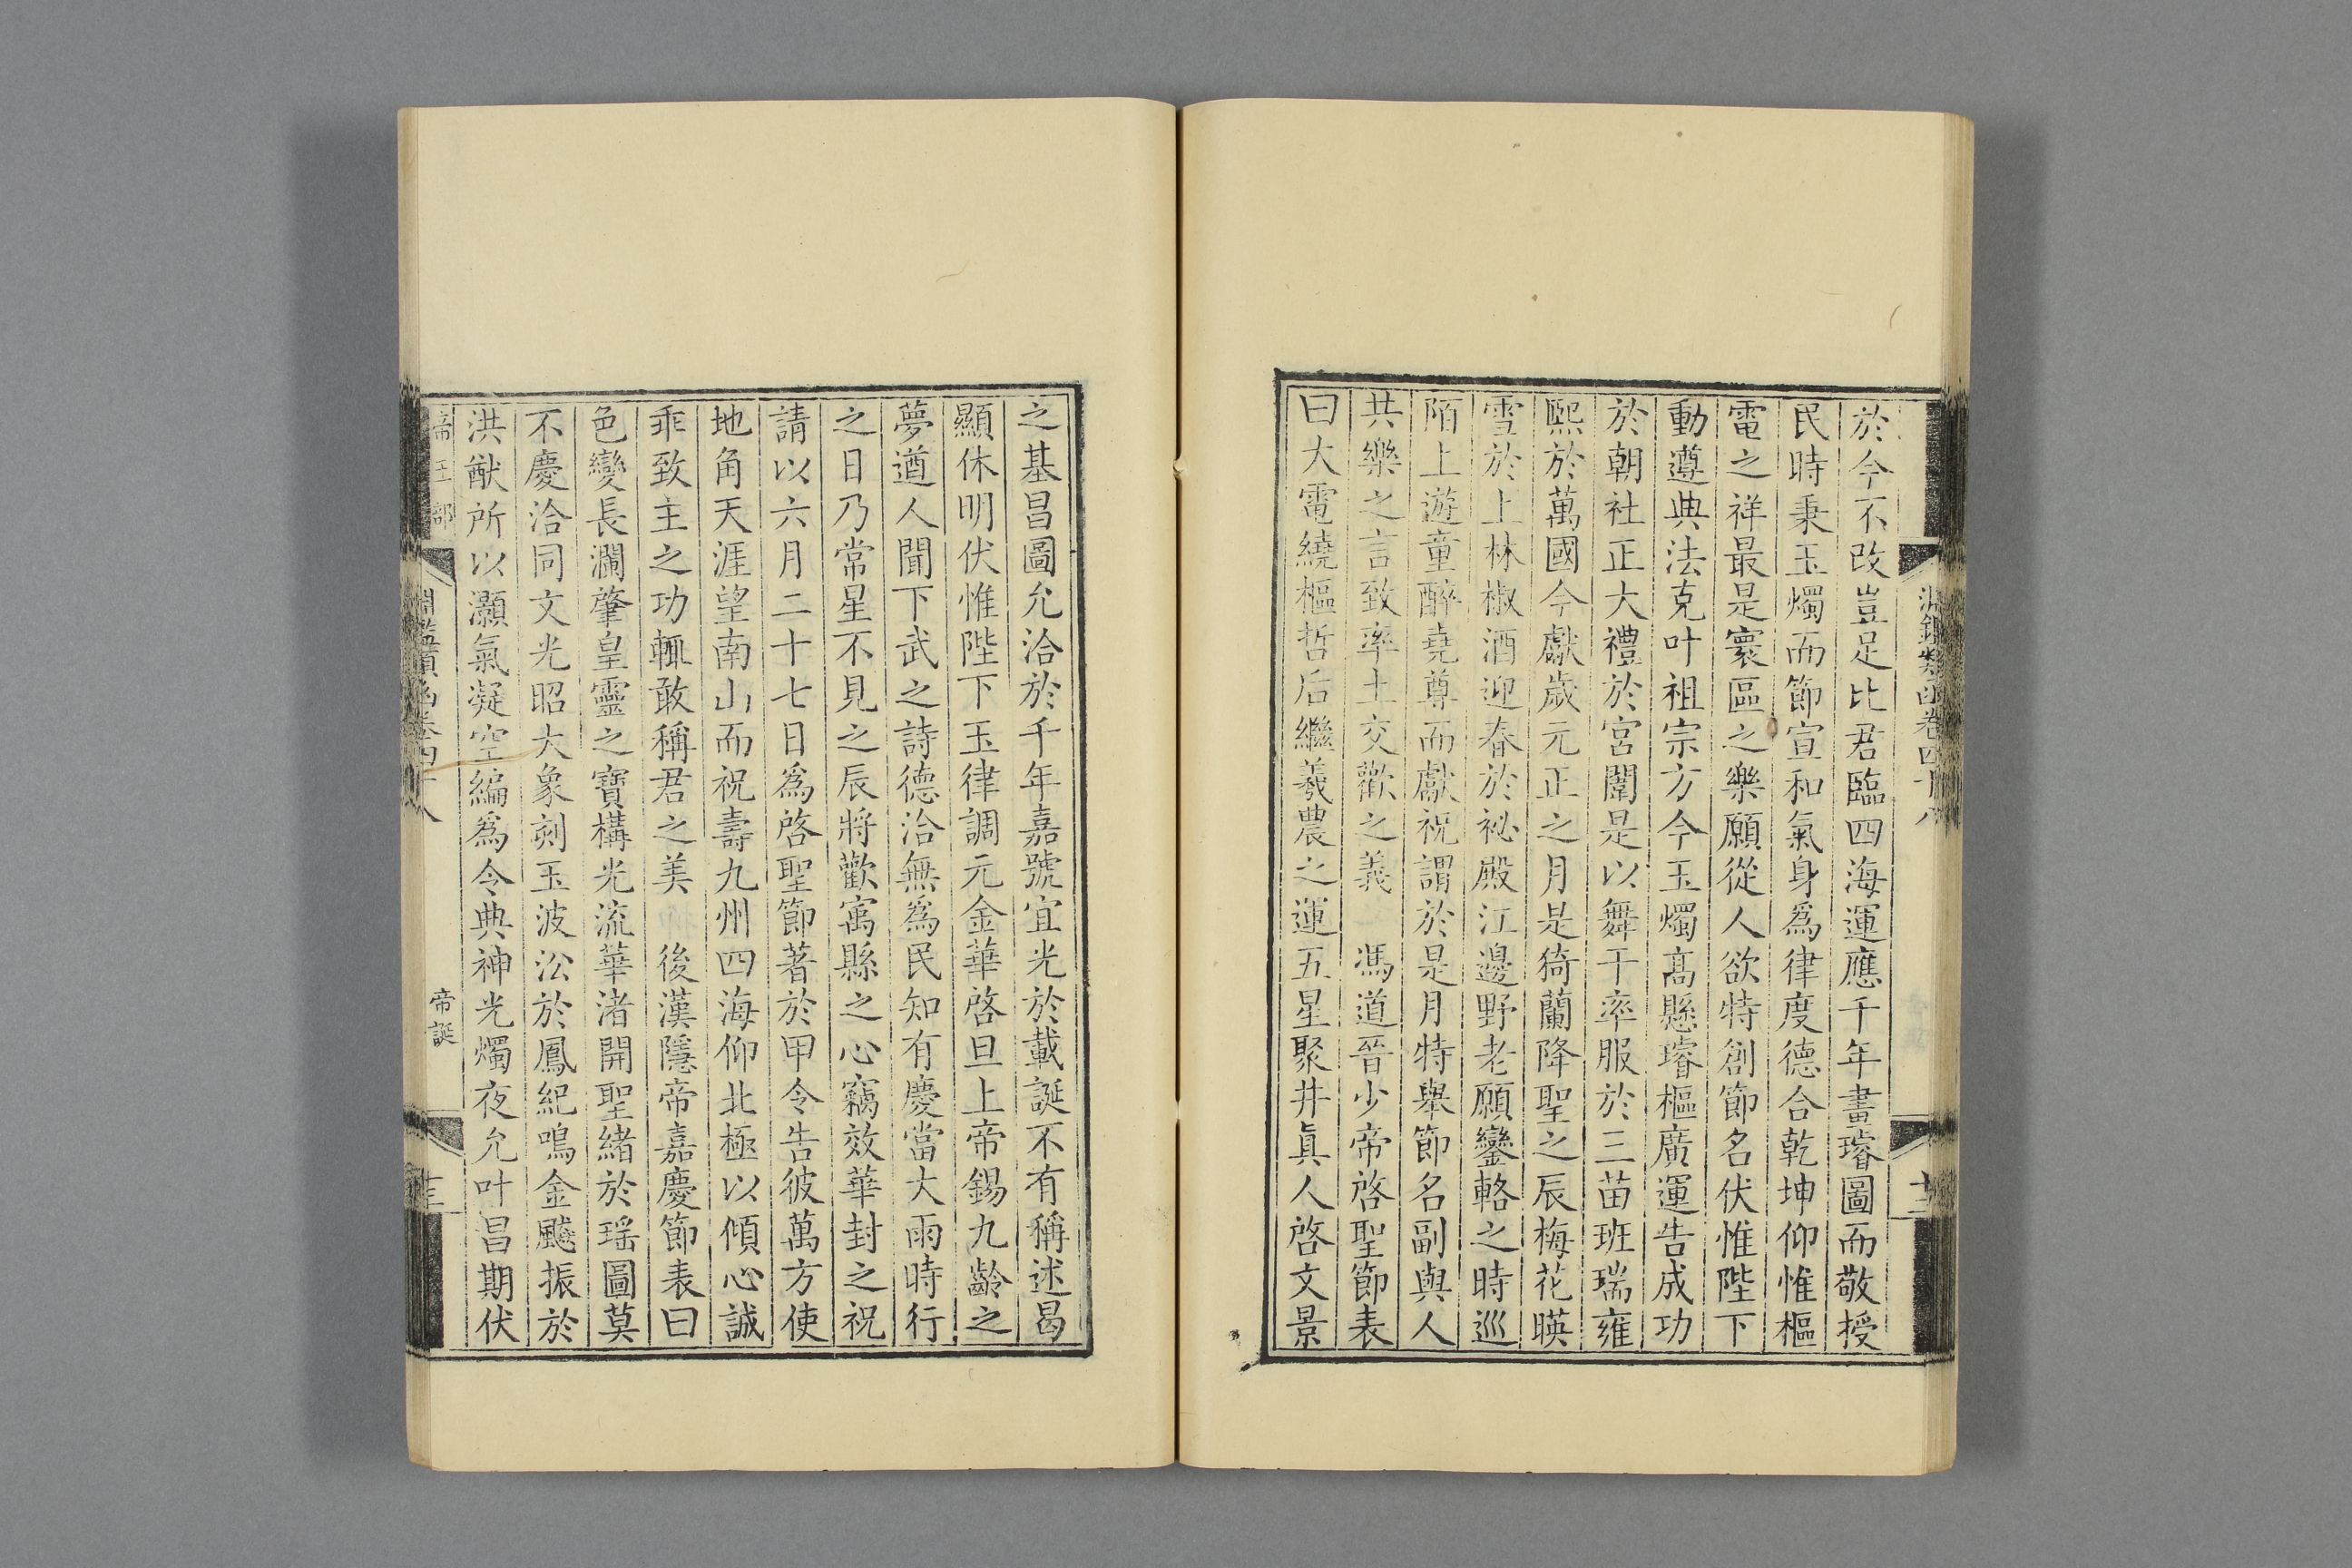 淵鑑類函卷四十八
十二
於今不改豈足比君臨四海運應千年畫璿圖而敬授
民時秉玉燭而節宣和氣身爲律度德合乾坤仰惟樞
電之祥最是寰區之樂願從人欲特創節名伏惟陛下
動遵典法克叶祖宗方今玉燭髙懸璿樞廣運告成功
於朝社正大禮於宮闈是以舞干率服於三苗班瑞雍
熙於萬國今獻歲元正之月是猗蘭降聖之辰梅花暎
雪於上林椒酒迎春於祕殿江邊野老願鑾輅之時巡
陌上遊童醉堯尊而獻祝謂於是月特舉節名副輿人
共樂之言致率土交歡之義　馮道晉少帝啓聖節表
曰大電繞樞哲后繼羲農之運五星聚井眞人啓文景
之基昌圖允洽於千年嘉號宜光於載誕不有稱述曷
顯休明伏惟陛下玉律調元金華啓旦上帝錫九齡之
夢遒人聞下武之詩德洽無爲民知有慶當大雨時行
之日乃常星不見之辰將歡寓縣之心竊效華封之祝
請以六月二十七日爲啓聖節著於甲令告彼萬方使
地角天涯望南山而祝壽九州四海仰北極以傾心誠
乖致主之功輒敢稱君之美　後漢隱帝嘉慶節表曰
色變長瀾肇皇靈之寶構光流華渚開聖緒於瑶圖莫
不慶洽同文光昭大象刻玉波㳂於鳳紀鳴金飈振於
洪猷所以灝氣凝空編爲令典神光燭夜允叶昌期伏
帝王部
淵鑑類函卷四十八
帝誕
十三